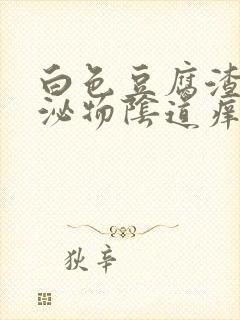 白色豆腐渣
泌物陰道痒
狄辛